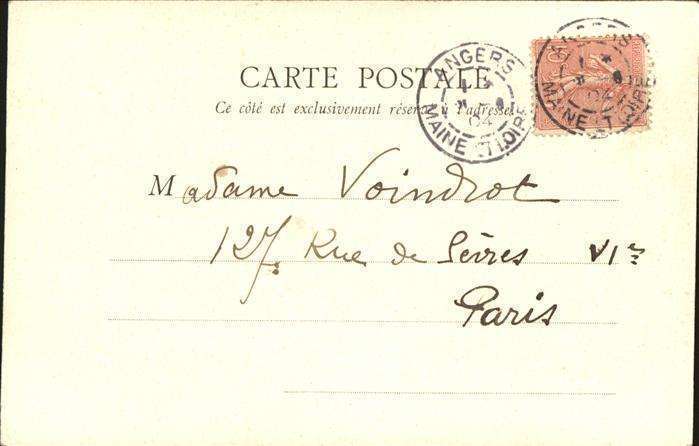 CARTE POSTALE
Ce côté est exclusivement réservé à l'adresse
ANGERS
04
MAINE ET LOIRE
04
MAINE ET LOIRE
Madame Voindrot
127, Rue de Sèvres VIe
Paris